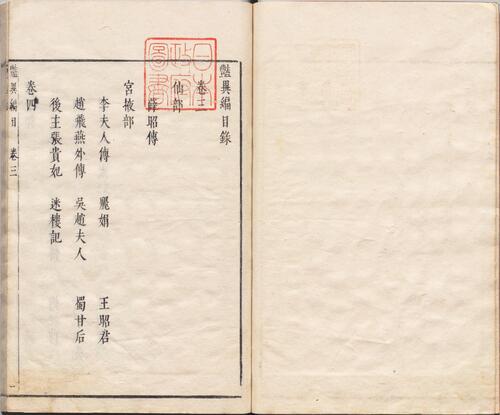 豔異編目錄
卷三
仙部
薛昭傳
宮掖部
李夫人傳 麗娟 王昭君
趙飛燕外傳 吳趙夫人 蜀甘后
後主張貴妃 迷樓記
卷四
豔異編目 卷三 一
日本政府圖書